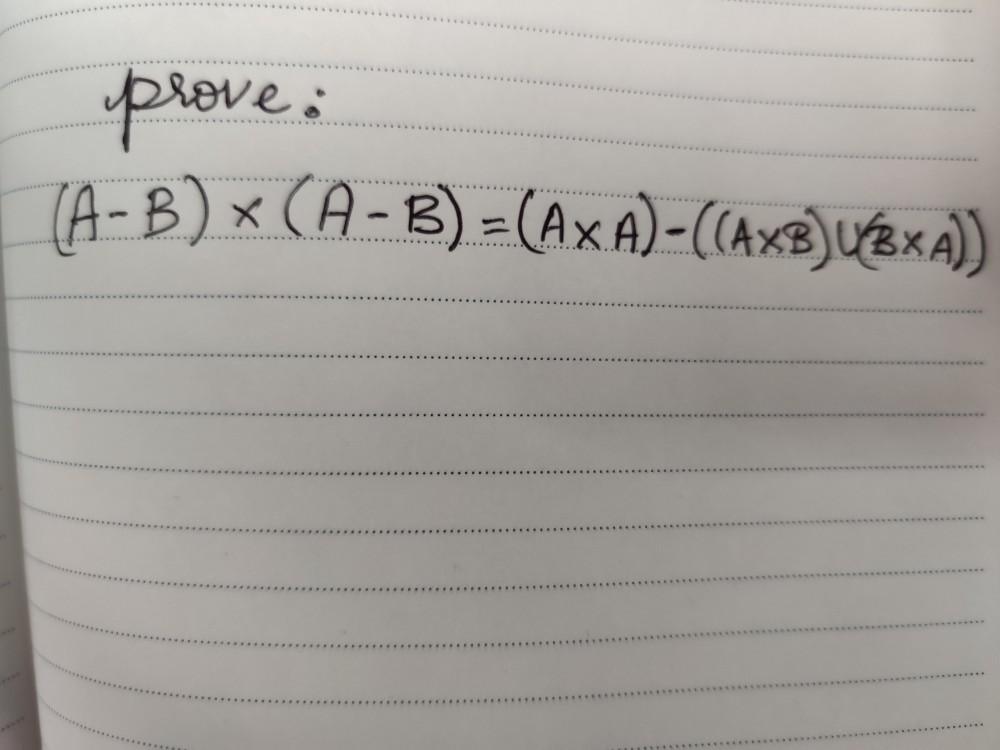 prove:
(A-B) × (A-B) = (A×A)-((A×B)∪(B×A))